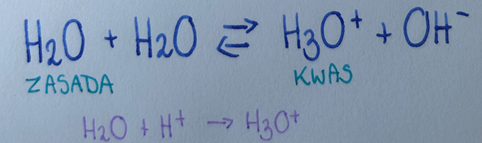 H₂O + H₂O ⇄ H₃O⁺ + OH⁻
ZASADA KWAS
H₂O + H⁺ → H₃O⁺